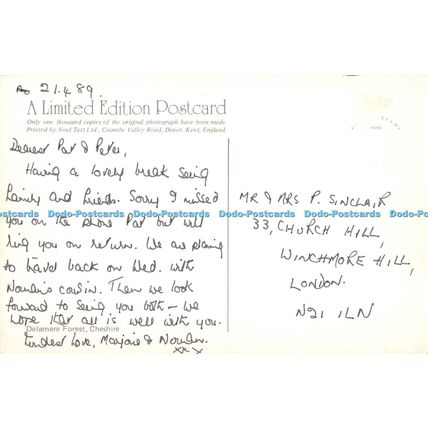 21.4.89.
A Limited Edition Postcard
Only one thousand copies of the original photograph have been made.
Printed by Noel Tatt Ltd., Coombe Valley Road, Dover, Kent, England.
Dearest Pat & Peter,
Having a lovely break seeing
family and friends. Sorry I missed
you on the phone Pat but will
ring you on return. We are planning
to travel back on Wed. with
cousin. Then we look
forward to seeing you both – we
hope that all is well with you.
Delamere Forest, Cheshire
Fondest Love, Marjorie &
xxx
MR & MRS P. SINCLAIR
33, CHURCH HILL,
WINCHMORE HILL,
LONDON.
N21 1LN
Dodo-Postcards Dodo-Postcards Dodo-Postcards Dodo-Postcards